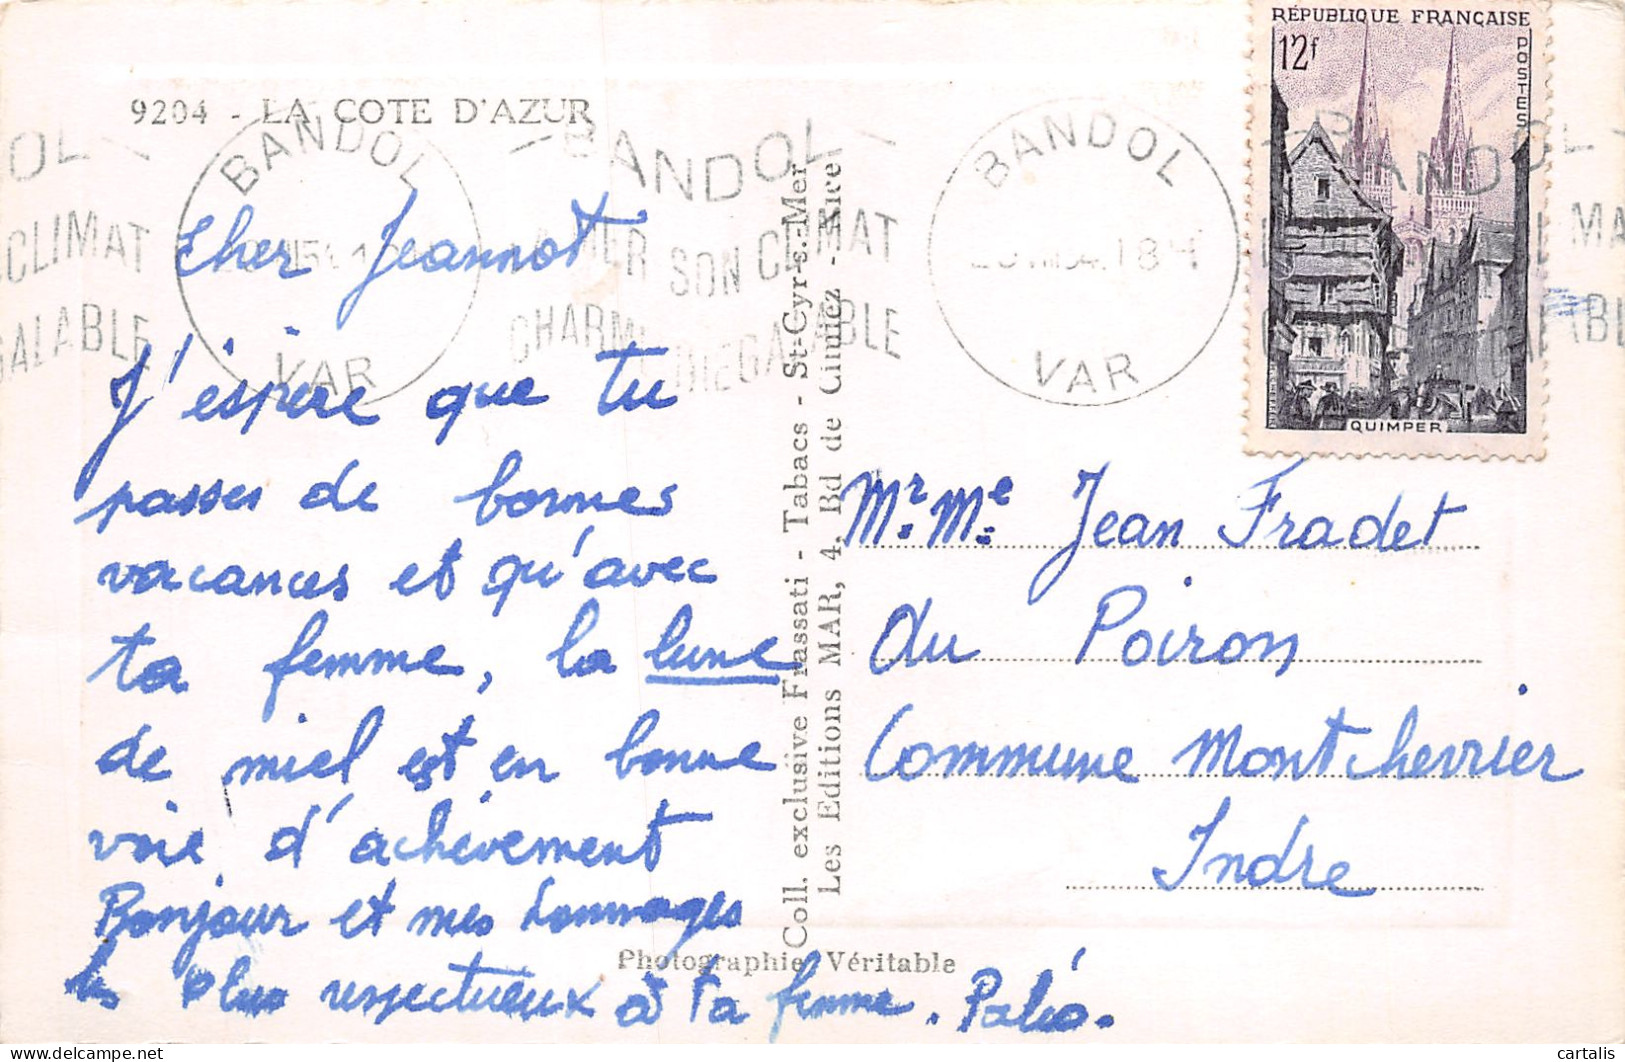 9204 - LA COTE D'AZUR
BANDOL
VAR
BANDOL
SON CLIMAT
BANDOL
VAR
18 H
RÉPUBLIQUE FRANÇAISE
12f
POSTES
QUIMPER
Cher Jeannot
J'éspère que tu
passes de bonnes
vacances et qu'avec
ta femme, la lune
de miel est en bonne
voie d'achèvement
Bonjour et mes hommages
les plus respectueux à ta femme.
Coll. exclusive Frassati - Tabacs - St-Cyr-s.-Mer
Les Editions MAR, 4, Bd de Cimiez - Nice
Mr. Me. Jean Fradet
du Poiron
Commune Montchevrier
Indre
Photographie Véritable
cartalis